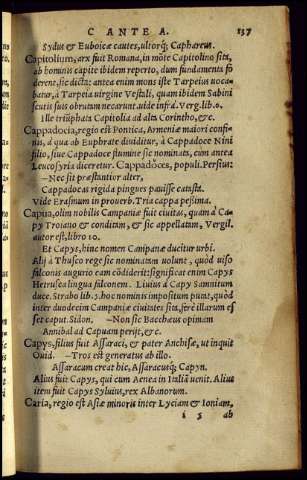 C ANTE A. 137
Sydus & Euboicæ cautes, ultorq; Caphareus.
Capitolium, arx fuit Romana, in mõte Capitolino sita,
ab hominis capite ibidem reperto, dum fundamenta fo
derent, sic dicta: antea enim mons iste Tarpeius uoca-
batur, à Tarpeia uirgine Vestali, quam ibidem Sabini
scutis suis obrutam necarunt. uide infrà. Verg. lib. 6.
Ille triũphata Capitolia ad alta Corintho, &c.
Cappadocia, regio est Pontica, Armeniæ maiori confi-
nis, à qua ab Euphrate diuiditur, à Cappadoce Nini
filio, siue Cappadoce flumine sic nominata, cum antea
Leucosyria diceretur. Cappadoces, populi. Persius:
–Nec sit præstantior alter,
Cappadocas rigida pingues pauisse catasta.
Vide Erasmum in prouerb. Tria cappa peßima.
Capua, olim nobilis Campaniæ fuit ciuitas, quam à Ca-
py Troiano & conditam, & sic appellatam, Vergil.
autor est, libro 10.
Et Capys, hinc nomen Campanæ ducitur urbi.
Alij à Thusco rege sic nominatam uolunt, quòd uiso
falconis augurio eam cõdiderit: significat enim Capys
Hetrusca lingua falconem. Liuius à Capy Samnitum
duce. Strabo lib. 5. hoc nominis impositum putat, quòd
inter duodecim Campaniæ ciuitates sita, ferè illarum es
set caput. Sidon. –Non sic Bacchæus opimam
Annibal ad Capuam perijt, &c.
Capys, filius fuit Assaraci, & pater Anchisæ, ut inquit
Ouid. –Tros est generatus ab illo.
Assaracum creat hic, Assaracusq; Capyn.
Alius fuit Capys, qui cum Aenea in Italiã uenit. Alius
item fuit Capys Syluius, rex Albanorum.
Caria, regio est Asiæ minoris inter Lyciam & Ioniam,
i 5 ab